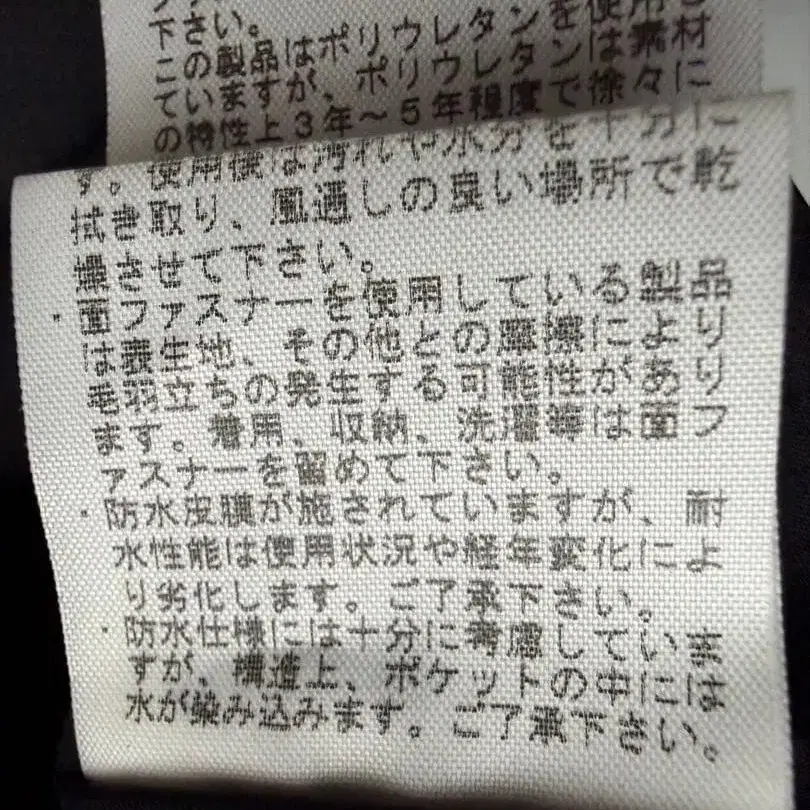 下さい。
この製品はポリウレタンを使用
ていますが、ポリウレタンは素材
の特性上3年～5年程度で徐々に
す。使用後は汚れや水分を十分に
拭き取り、風通しの良い場所で乾
燥させて下さい。
・面ファスナーを使用している製品
は表生地、その他との摩擦により
毛羽立ちの発生する可能性があり
ます。着用、収納、洗濯等は面フ
ァスナーを留めて下さい。
・防水皮膜が施されていますが、耐
水性能は使用状況や経年変化によ
り劣化します。ご了承下さい。
・防水仕様には十分に考慮していま
すが、構造上、ポケットの中には
水が染み込みます。ご了承下さい。